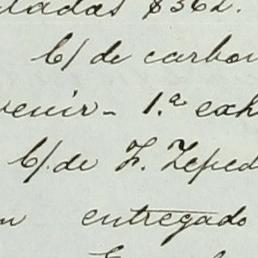 tadas $362.
C/ de carbon
venir - 1.ª exh
C/. de Z. Zeped
entregado